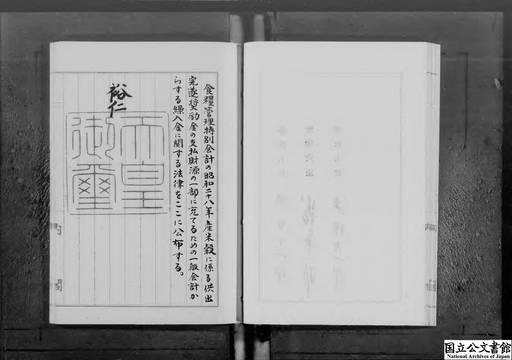 食糧管理特別会計の昭和二十八年産米穀に係る供出
完遂奨励金の支払財源の一部に充てるための一般会計か
らする繰入金に関する法律をここに公布する。
裕仁
天皇
御璽
国立公文書館
National Archives of Japan